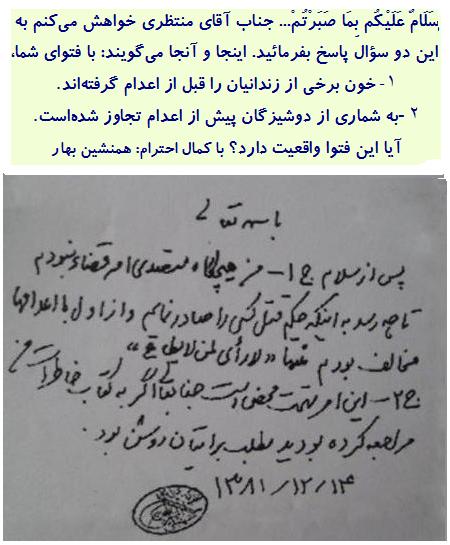 سَلَامٌ عَلَيْكُم بِمَا صَبَرْتُمْ... جناب آقای منتظری خواهش می‌کنم به
این دو سؤال پاسخ بفرمائید. اینجا و آنجا می‌گویند: با فتوای شما،
۱- خون برخی از زندانیان را قبل از اعدام گرفته‌اند.
۲-به شماری از دوشیزگان پیش از اعدام تجاوز شده‌است.
آیا این فتوا واقعیت دارد؟ با کمال احترام: همنشین بهار
باسمه تعالی
پس از سلام ج ۱- من هیچگاه متصدی امر قضاء نبودم
تا چه رسد به اینکه حکم قتل کسی را صادر نمایم و از اول با اعدامها
مخالف بودم «لا رأی لمن لا یطاع»
ج ۲- این امر تهمت محض است جنابعالی اگر به کتاب خاطرات من
مراجعه کرده بودید مطلب برایتان روشن بود.
۱۳۸۱/۱۲/۱۴